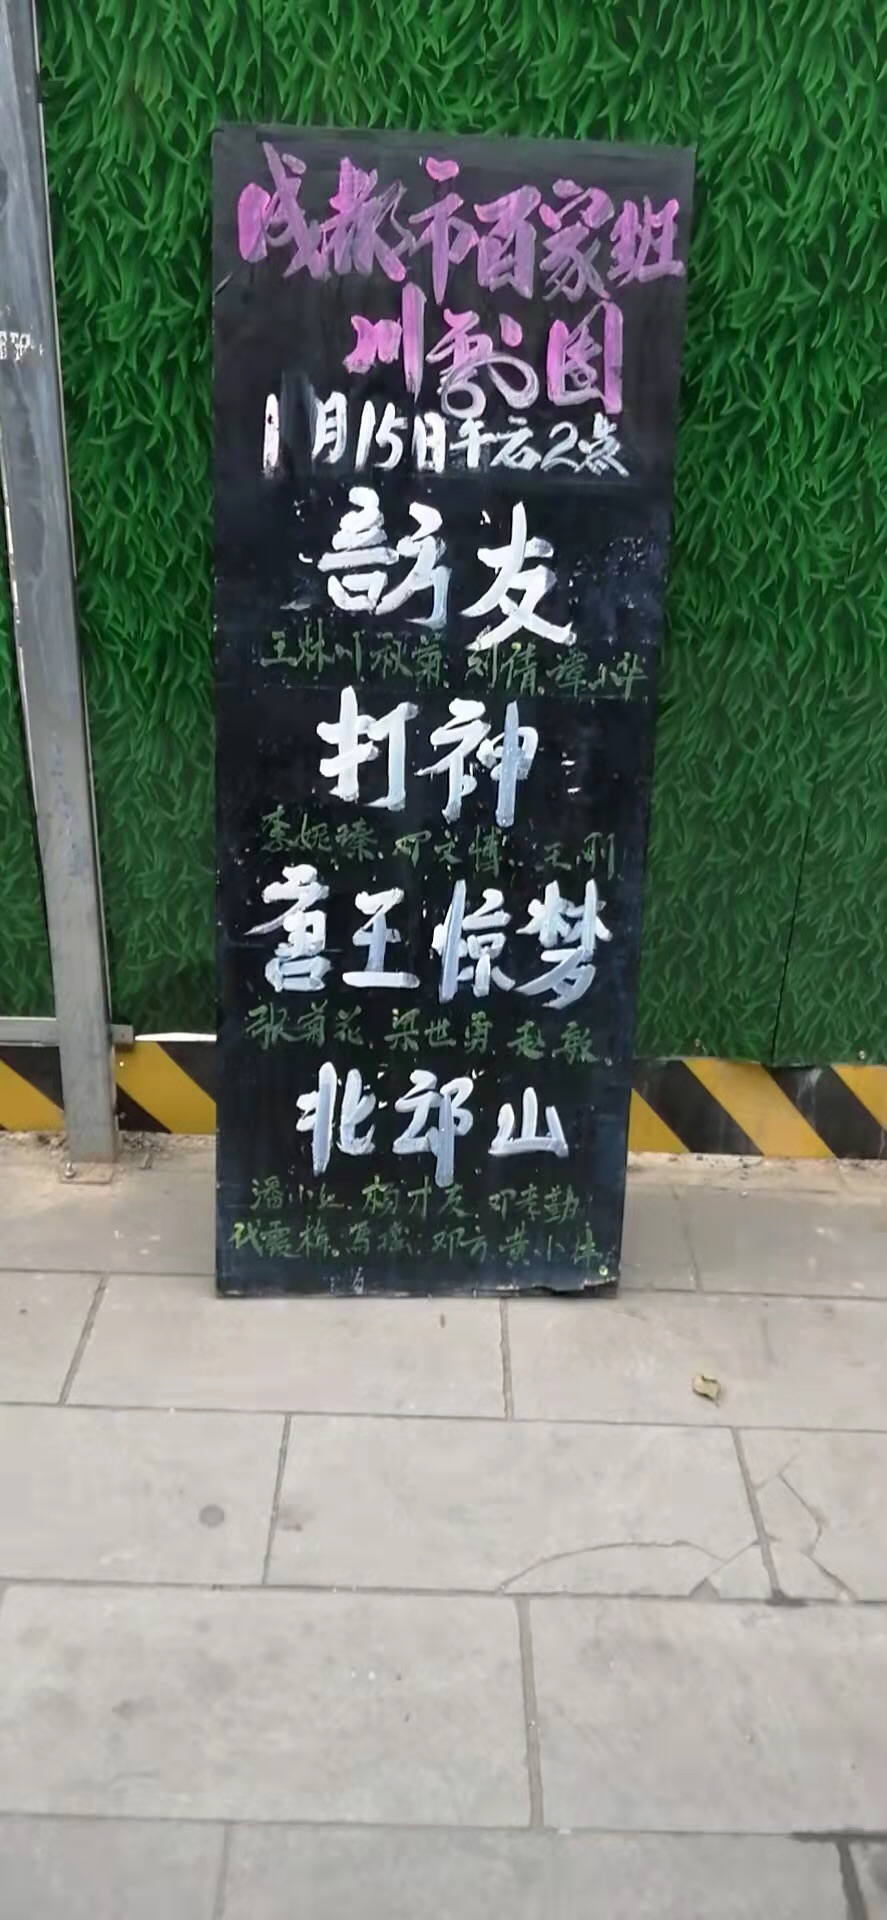 成都市百家班
川剧团
1月15日午后2点
访友
王林川 秋菊、刘倩、谭小华
打神
李妮臻、文博、王刚
唐王惊梦
张菊花、梁世勇、赵毅
北邙山
潘小上、杨才友、邓孝勤
代震栋、邓方、黄小佳